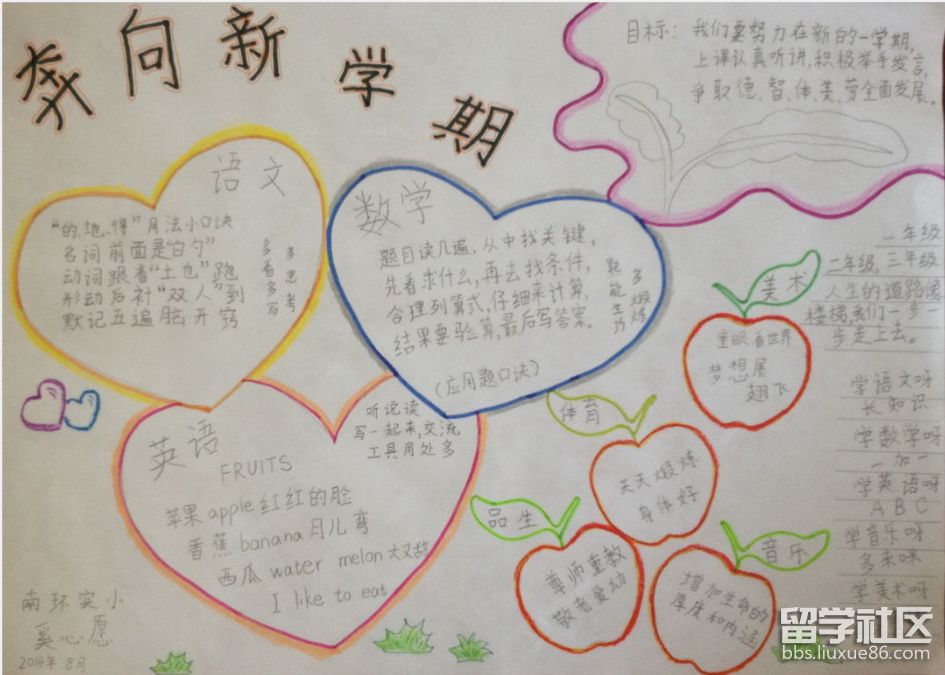 奔向新学期
目标：我们要努力在新的一学期，
上课认真听讲，积极举手发言，
争取德、智、体、美、劳全面发展。
语文
“的、地、得”用法小口诀
名词前面是“白勺”
动词跟着“土也”跑
形动后补“双人”到
默记五遍脑开窍
多看多写
多思考
数学
题目读几遍，从中找关键，
先看求什么，再去找条件，
合理列算式，仔细来计算，
结果要验算，最后写答案。
（应用题口诀）
聪能生巧
多煅炼
英语
FRUITS
听说读
写一起来，交流
工具用处多
苹果 apple 红红的脸
香蕉 banana 月儿弯
西瓜 water melon 大又甜
I like to eat
美术
童眼看世界
梦想展
翅飞
体育
天天煅炼
身体好
品生
尊师重教
敬老爱幼
音乐
增加生命的
厚度和内涵
一年级
二年级，三年级
人生的道路像
楼梯，我们一步一
步走上去。
学语文呀
长知识
学数学呀
一加一
学英语呀
A B C
学音乐呀
多来咪
学美术呀
南环实小
奚心愿
2014年8月
留学社区
bbs.liuxue86.com